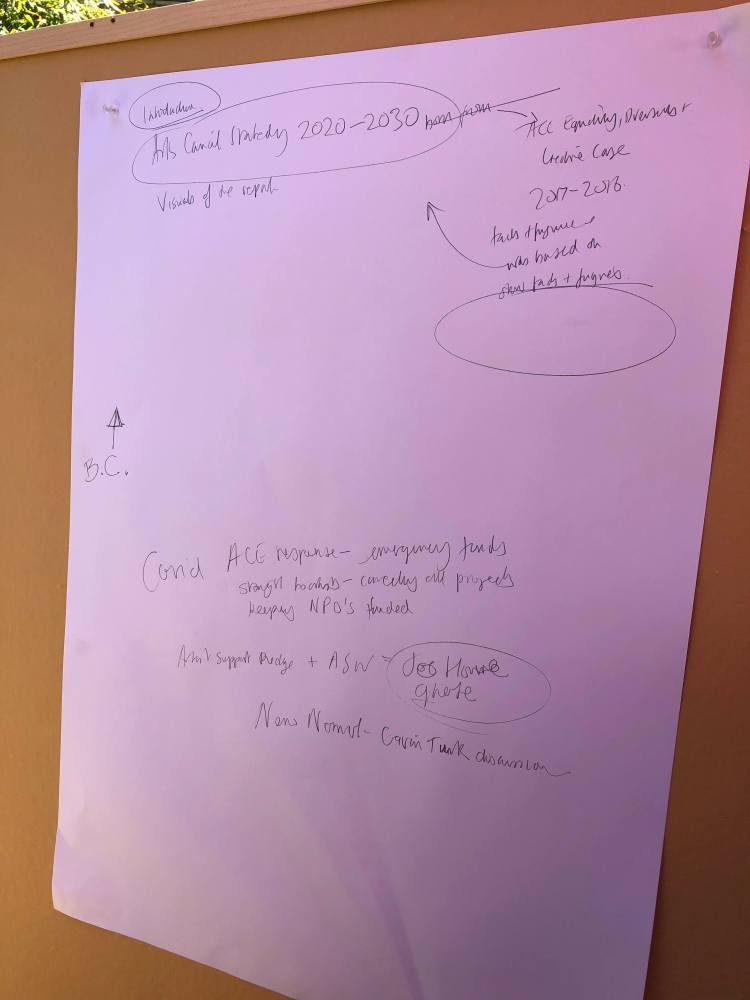 Introduction
Arts Council Strategy 2020-2030 born from
Visuals of the report
ACE Equality, Diversity +
Creative Case
2017-2018.
facts + figures
was based on
facts + figures.
B.C.
Covid ACE response - emergency funds
straight - cancelling all projects
keeping NPO's funded
Artist Support Pledge + ASW = Joe Howe
quote
New Normal - Gavin Turk discussion